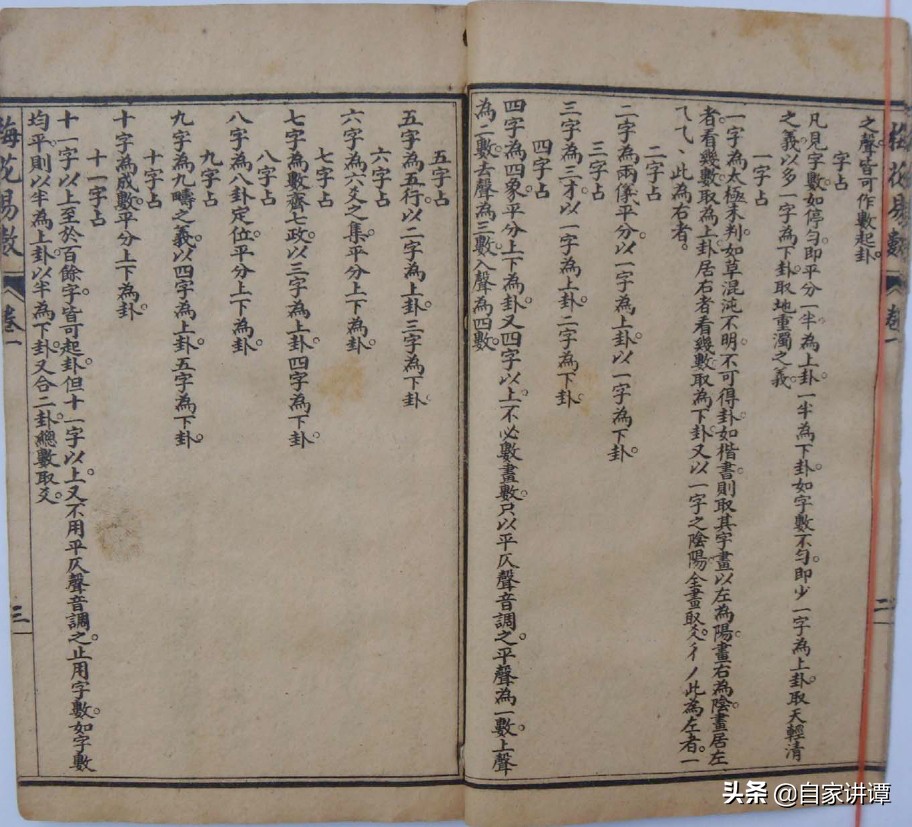 梅花易數
卷一
二
之聲皆可作數起卦。
字占
凡見字數如停勻。即平分一半為上卦。一半為下卦。如字數不勻。即少一字為上卦。取天輕清
之義。以多一字為下卦。取地重濁之義。
一字占
一字為太極未判。如草混沌不明。不可得卦。如楷書則取其字畫。以左為陽畫。右為陰畫。居左
者看幾數。取為上卦。居右者看幾數。取為下卦。又以一字之陰陽全畫取爻。彳丿此為左者。一
乁乀丶此為右者。
二字占
二字為兩儀平分。以一字為上卦。以一字為下卦。
三字占
三字為三才。以一字為上卦。二字為下卦。
四字占
四字為四象。平分上下為卦。又四字以上。不必數畫數。只以平仄聲音調之。平聲為一數。上聲
為二數。去聲為三數。入聲為四數。
五字占
五字為五行。以二字為上卦。三字為下卦。
六字占
六字為六爻之集。平分上下為卦。
七字占
七字為數齋七政。以三字為上卦。四字為下卦。
八字占
八字為八卦定位。平分上下為卦。
九字占
九字為九疇之義。以四字為上卦。五字為下卦。
十字占
十字為成數。平分上下為卦。
十一字占
十一字以上至於百餘字。皆可起卦。但十一字以上。又不用平仄聲音調之。止用字數。如字數
均平。則以半為上卦。以半為下卦。又合二卦總數取爻。
梅花易數
卷一
三
头条 @自家讲谭